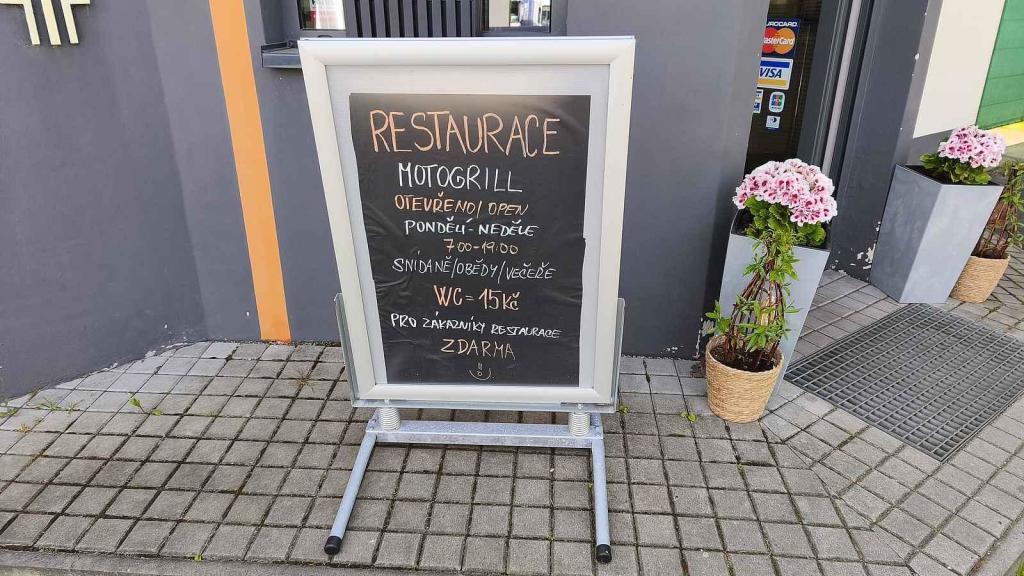 RESTAURACE
MOTOGRILL
OTEVŘENO/OPEN
PONDĚLÍ-NEDĚLE
7:00-19:00
SNÍDANĚ/OBĚDY/VEČEŘE
WC = 15 kč
PRO ZÁKAZNÍKY RESTAURACE
ZDARMA
EUROCARD
MasterCard
VISA